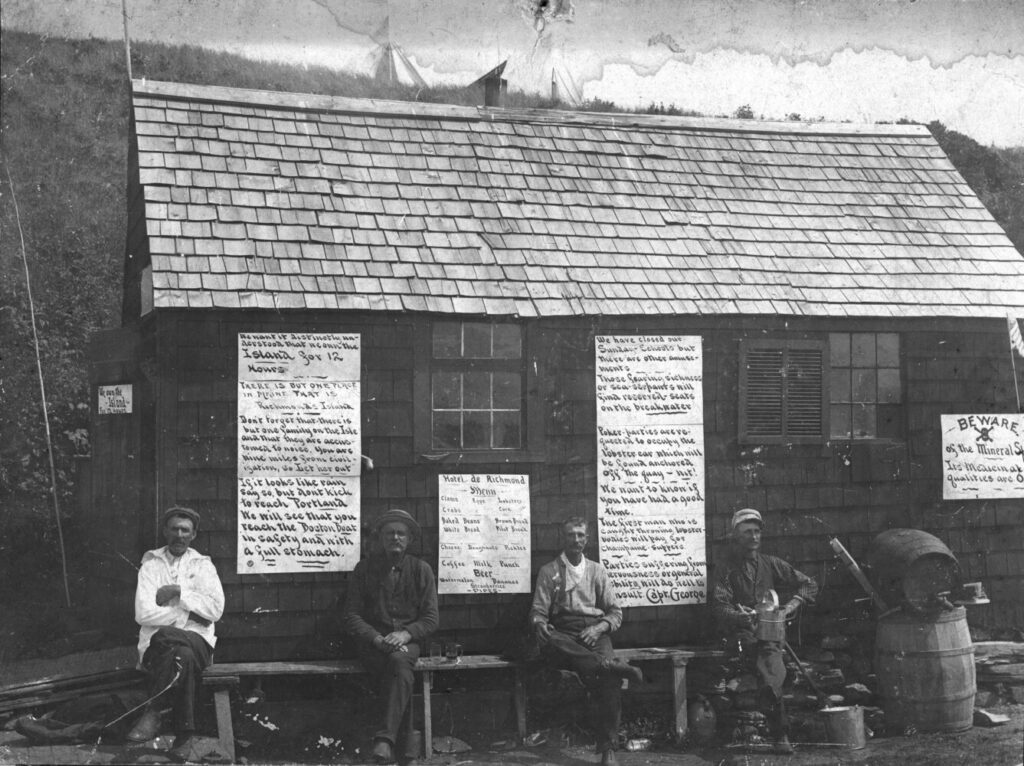 We own the
Island
We want it distinctly un-
derstood that we own the
Island for 12
Hours
There is but one place
in Maine that is
Richmond's Island
Don't forget that there is
but one family on the Isle
and that they are accus-
tomed to noise. You are
nine miles from civil-
ization, so let her out
If it looks like rain
say so, but don't kick
to reach Portland
We will see that you
reach the Boston Boat
in safety and with
a full stomach.
Hotel de Richmond
Menu
Clams Eggs Lobsters
Crabs Corn
Baked Beans Brown Bread
White Bread Pilot Bread
Cheese Doughnuts Pickles
Coffee Milk Punch
Beer
Watermelon Bananas
Strawberries
PIPES
We have closed our
Sunday-Schools but
there are other amuse-
ments
Those fearing sickness
or sea-serpents will
find reserved seats
on the breakwater
Poker-parties are re-
quested to occupy the
lobster car which will
be found anchored
off the quay - nit!
We want to know if
you have had a good
time.
The first man who is
caught throwing lobster
bones will pay for
champagne suppers.
Parties suffering from
nervousness or general
debility will do well to
consult Capt. George
BEWARE
of the Mineral
Its Medicinal
qualities are